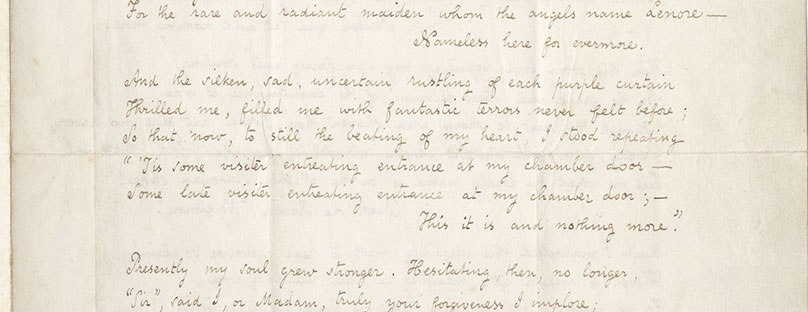 For the rare and radiant maiden whom the angels name Lenore —
Nameless here for evermore.
And the silken, sad, uncertain rustling of each purple curtain
Thrilled me, filled me with fantastic terrors never felt before;
So that now, to still the beating of my heart, I stood repeating
"'Tis some visiter entreating entrance at my chamber door —
Some late visiter entreating entrance at my chamber door; —
This it is and nothing more."
Presently my soul grew stronger. Hesitating, then, no longer,
"Sir", said I, or Madam, truly your forgiveness I implore;